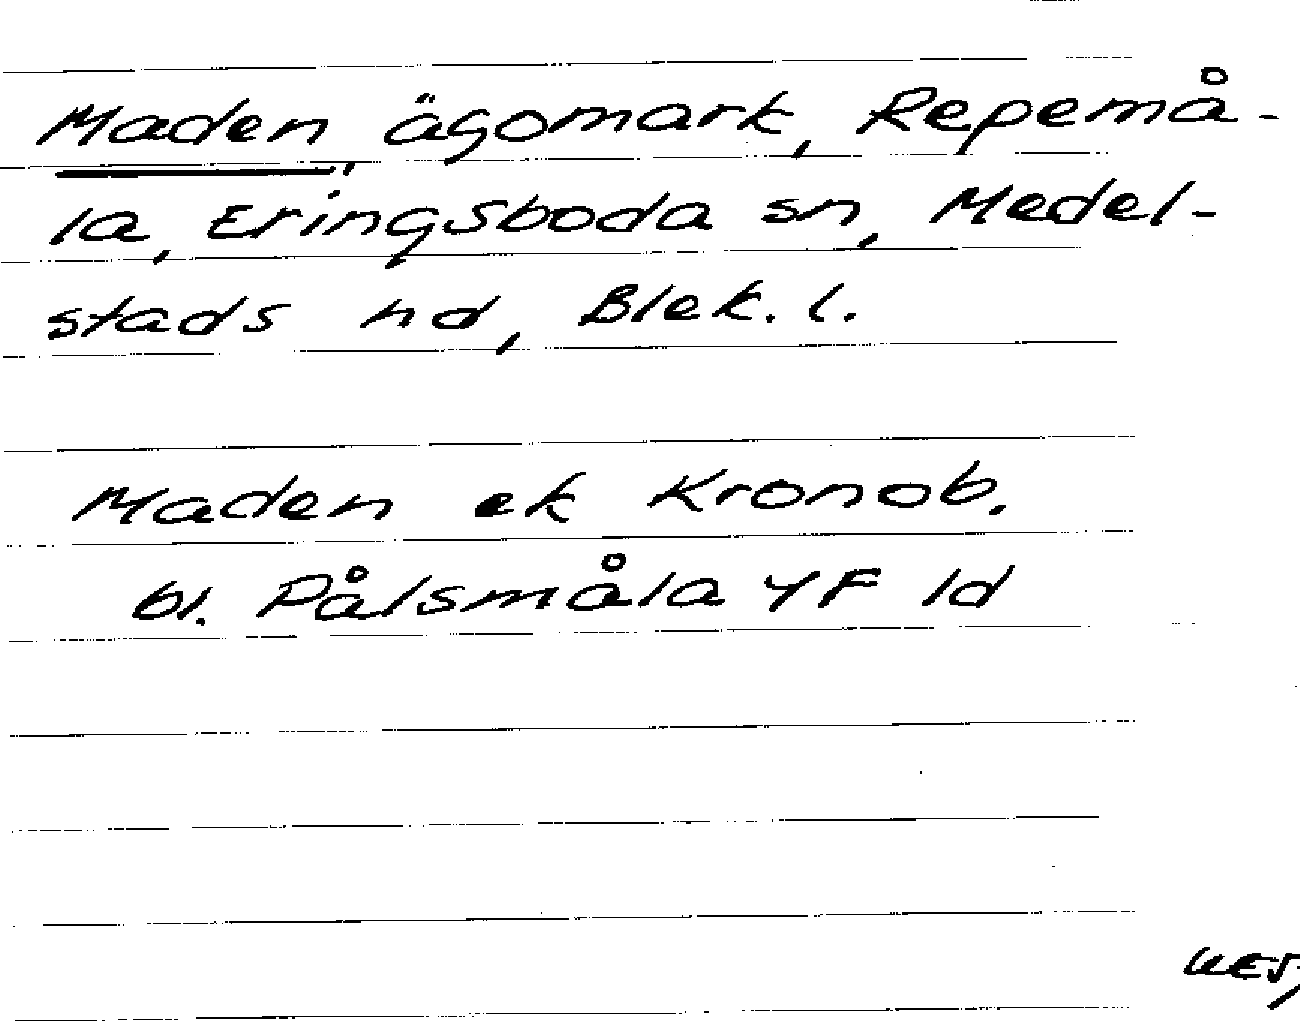 Maden, ägomark, Repemå-
la, Eringsboda sn, Medel-
stads hd, Blek. l.
Maden ek Kronob.
bl. Pålsmåla YF 1d